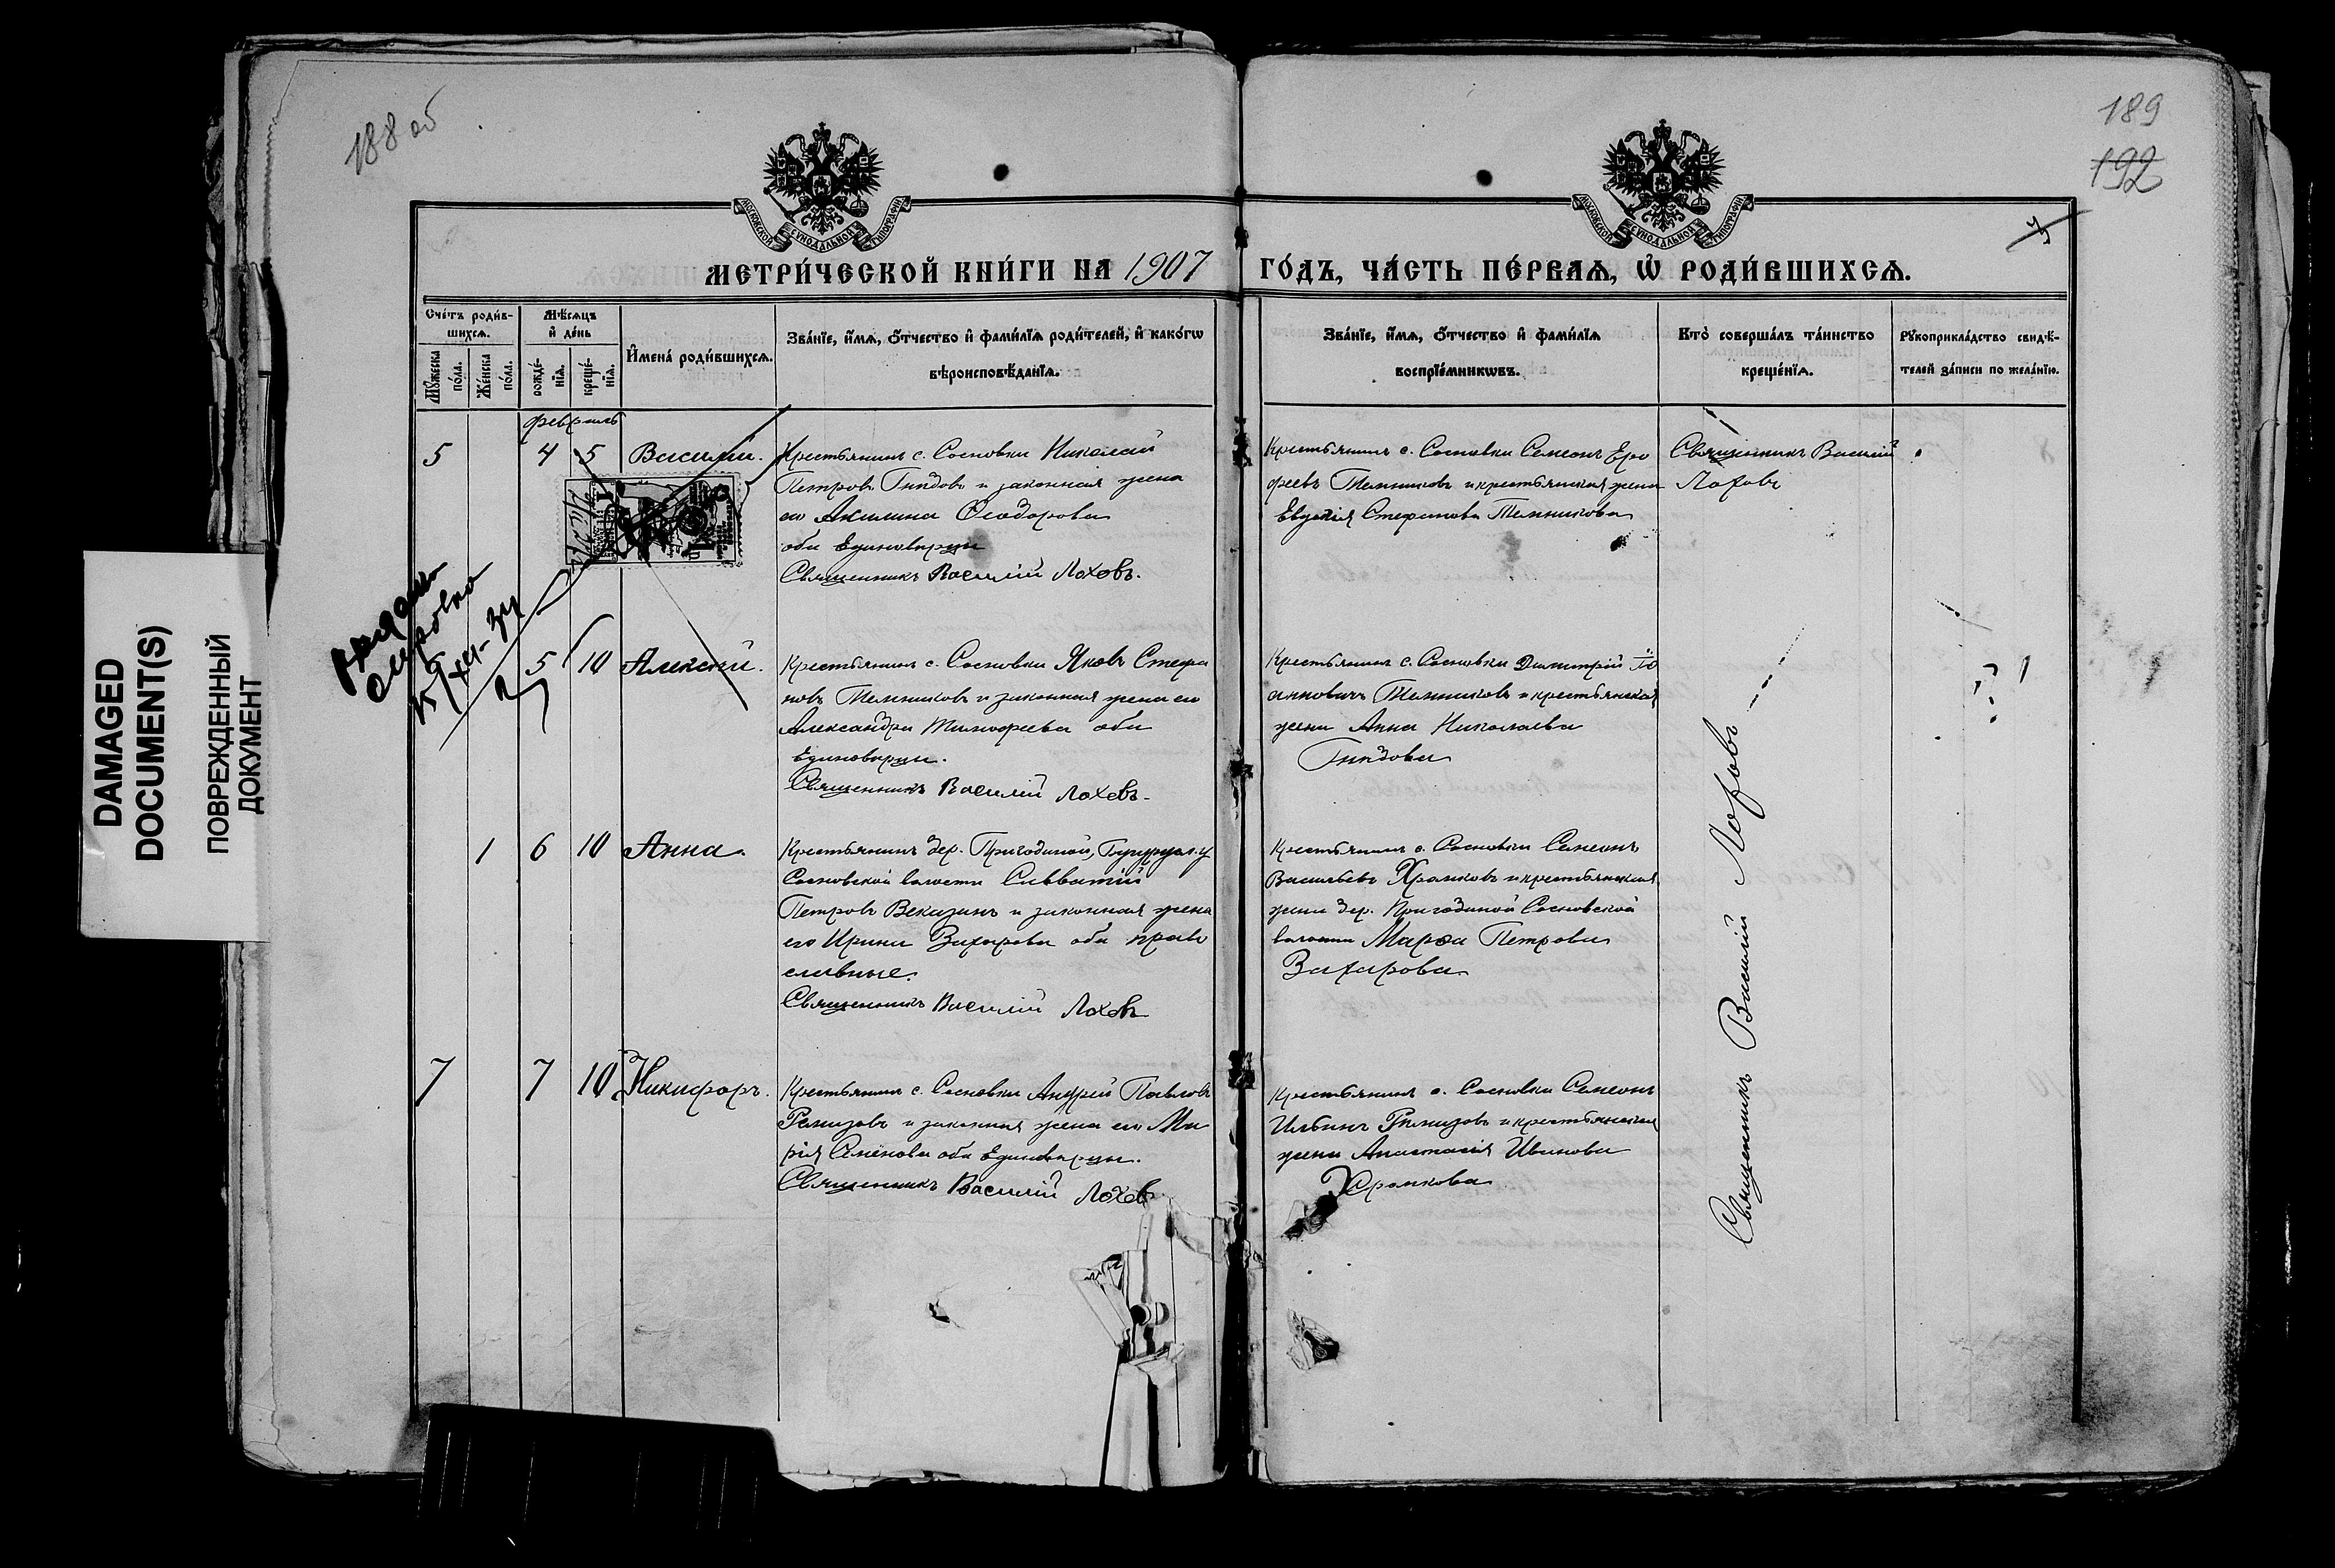 188 об
189
192
МОСКОВСКОЙ СѴНОДАЛЬНОЙ ТИПОГРАФІИ
МОСКОВСКОЙ СѴНОДАЛЬНОЙ ТИПОГРАФІИ
МЕТРИ́ЧЕСКОЙ КНИ́ГИ НА 1907
ГО́ДЪ, ЧА́СТЬ ПЕ́РВАѦ, Ѽ РОДИ́ВШИХСѦ.
Сче́тъ роди́в-
шихсѧ.
Мꙋ́жеска
по́ла.
Же́нска
по́ла.
Мѣ́сѧцъ
и҆ де́нь
рожде́-
нїѧ.
креще́-
нїѧ.
И҆мена̀ роди́вшихсѧ.
Зва́нїе, и҆́мѧ, ѻ҆́тчество и҆ фами́лїѧ роди́телей, и҆ како́гѡ
вѣроисповѣ́данїѧ.
Зва́нїе, и҆́мѧ, ѻ҆́тчество и҆ фами́лїѧ
воспрїе́мникѡвъ.
Кто̀ соверша́лъ та́инство
креще́нїѧ.
Рꙋкоприкла́дство свидѣ́-
телей за́писи по жела́нїю.
февраль
5 4 5 Василій.
Крестьянинъ с. Сосновки Николай
Петровъ Гнидовъ и законная жена
его Акилина Ѳеодорова
оба Единоверцы
Священникъ Василій Лоховъ.
Крестьянинъ с. Сосновки Семеонъ Еро
феевъ Темниковъ и крестьянская жена
Евдокія Стефанова Темникова
Священникъ Василій
Лоховъ
6 5 10 Алексій.
Крестьянинъ с. Сосновки Яковъ Стефа
новъ Темниковъ и законная жена его
Александра Тимофеева оба
Единоверцы.
Священникъ Василій Лоховъ.
Крестьянинъ с. Сосновки Димитрій Іо
анновичъ Темниковъ и крестьянская
жена Анна Николаева
Гнидова
1 6 10 Анна.
Крестьянинъ дер. Пригодиной, Бугурусл. у
Сосновской волости Савватій
Петровъ Веказинъ и законная жена
его Ирина Захарова оба право
славные.
Священникъ Василій Лоховъ
Крестьянинъ с. Сосновки Семеонъ
Васильевъ Храмковъ и крестьянская
жена дер. Пригодиной Сосновской
волости Марѳа Петрова
Захарова
7 7 10 Никифоръ.
Крестьянинъ с. Сосновки Андрей Павловъ
Ремизовъ и законная жена его Ма
рія Семенова оба Единоверцы.
Священникъ Василій Лоховъ
Крестьянинъ с. Сосновки Семеонъ
Ильинъ Ремизовъ и крестьянская
жена Анастасія Иванова
Храмкова
Священникъ Василій Лоховъ
DAMAGED
DOCUMENT(S)
ПОВРЕЖДЕННЫЙ
ДОКУМЕНТ